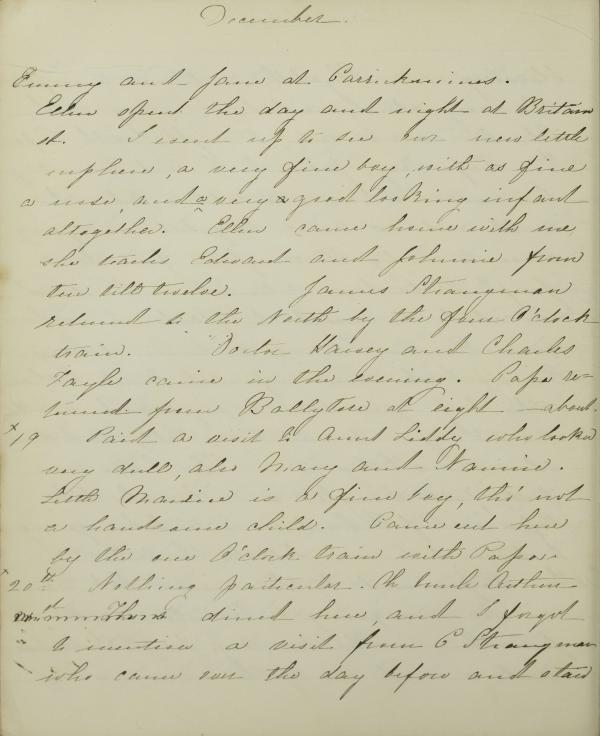 December.
Emmy and Jane at Carrickmines.
Ellen spent the day and night at Britain
st. I went up to see our new little
nephew, a very fine boy with as fine
a nose, and a very good looking infant
altogether. Ellen came home with me
she teaches Edward and Johnnie from
ten till twelve. James Strangman
returned to the North by the four O'clock
train. Doctor Harvey and Charles
Fayle came in the evening. Papa re-
turned from Ballytore at eight about.
x 19 Paid a visit to Aunt Liddy who looked
very dull, also Mary and Nannie.
Little Maurice is a fine boy, tho' not
a handsome child. Came out here
by the one O'clock train with Papa.
x 20th Nothing particular. Uncle Arthur
dined here, and I forgot
to mention a visit from C Strangman
who came over the day before and staid